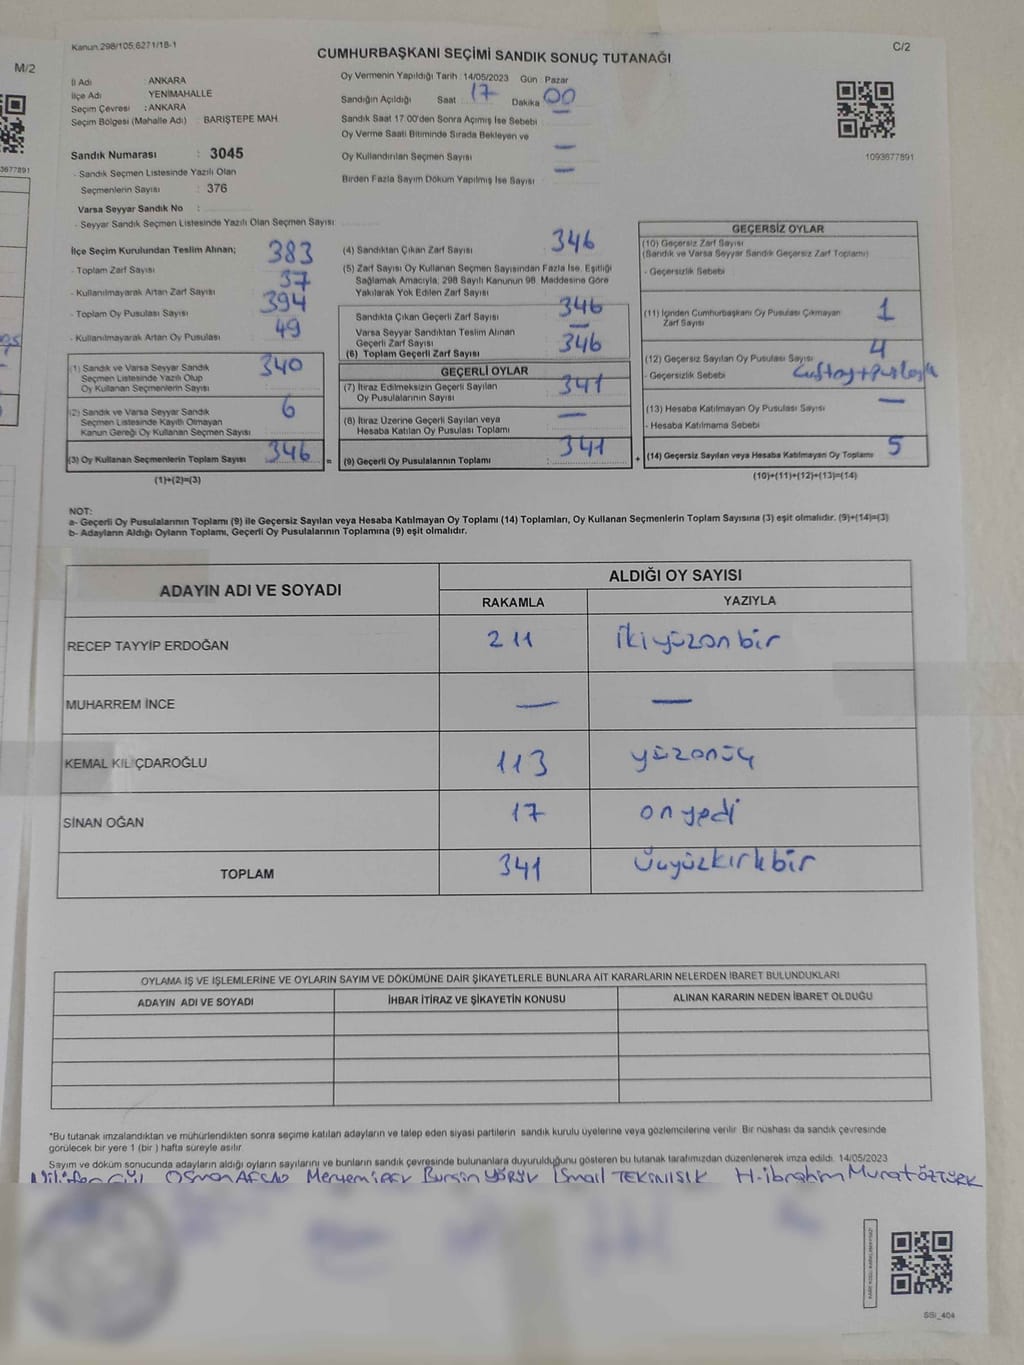 Kanun.298/105,6271/18-1
C/2
M/2
CUMHURBAŞKANI SEÇİMİ SANDIK SONUÇ TUTANAĞI
İl Adı : ANKARA
İlçe Adı : YENİMAHALLE
Seçim Çevresi : ANKARA
Seçim Bölgesi (Mahalle Adı) : BARIŞTEPE MAH.
Sandık Numarası : 3045
- Sandık Seçmen Listesinde Yazılı Olan
Seçmenlerin Sayısı : 376
Varsa Seyyar Sandık No :
- Seyyar Sandık Seçmen Listesinde Yazılı Olan Seçmen Sayısı:
Oy Vermenin Yapıldığı Tarih : 14/05/2023 Gün : Pazar
Sandığın Açıldığı Saat 17 Dakika 00
Sandık Saat 17.00'den Sonra Açımış İse Sebebi —
Oy Verme Saati Bitiminde Sırada Bekleyen ve
Oy Kullandırılan Seçmen Sayısı —
Birden Fazla Sayım Döküm Yapılmış İse Sayısı —
1093677891
İlçe Seçim Kurulundan Teslim Alınan;
- Toplam Zarf Sayısı 383
- Kullanılmayarak Artan Zarf Sayısı 37
- Toplam Oy Pusulası Sayısı 394
- Kullanılmayarak Artan Oy Pusulası 49
(1) Sandık ve Varsa Seyyar Sandık
Seçmen Listesinde Yazılı Olup
Oy Kullanan Seçmenlerin Sayısı 340
(2) Sandık ve Varsa Seyyar Sandık
Seçmen Listesinde Kayıtlı Olmayan
Kanun Gereği Oy Kullanan Seçmen Sayısı 6
(3) Oy Kullanan Seçmenlerin Toplam Sayısı 346 =
(1)+(2)=(3)
(4) Sandıktan Çıkan Zarf Sayısı 346
(5) Zarf Sayısı Oy Kullanan Seçmen Sayısından Fazla İse, Eşitliği
Sağlamak Amacıyla, 298 Sayılı Kanunun 98. Maddesine Göre
Yakılarak Yok Edilen Zarf Sayısı
Sandıkta Çıkan Geçerli Zarf Sayısı 346
Varsa Seyyar Sandıktan Teslim Alınan
Geçerli Zarf Sayısı —
(6) Toplam Geçerli Zarf Sayısı 346
GEÇERLİ OYLAR
(7) İtiraz Edilmeksizin Geçerli Sayılan
Oy Pusulalarının Sayısı 341
(8) İtiraz Üzerine Geçerli Sayılan veya
Hesaba Katılan Oy Pusulası Toplamı —
(9) Geçerli Oy Pusulalarının Toplamı 341 +
GEÇERSİZ OYLAR
(10) Geçersiz Zarf Sayısı
(Sandık ve Varsa Seyyar Sandık Geçersiz Zarf Toplamı)
- Geçersizlik Sebebi
(11) İçinden Cumhurbaşkanı Oy Pusulası Çıkmayan
Zarf Sayısı 1
(12) Geçersiz Sayılan Oy Pusulası Sayısı 4
- Geçersizlik Sebebi
(13) Hesaba Katılmayan Oy Pusulası Sayısı —
- Hesaba Katılmama Sebebi
(14) Geçersiz Sayılan veya Hesaba Katılmayan Oy Toplamı 5
(10)+(11)+(12)+(13)=(14)
NOT:
a- Geçerli Oy Pusulalarının Toplamı (9) ile Geçersiz Sayılan veya Hesaba Katılmayan Oy Toplamı (14) Toplamları, Oy Kullanan Seçmenlerin Toplam Sayısına (3) eşit olmalıdır. (9)+(14)=(3)
b- Adayların Aldığı Oyların Toplamı, Geçerli Oy Pusulalarının Toplamına (9) eşit olmalıdır.
ADAYIN ADI VE SOYADI
ALDIĞI OY SAYISI
RAKAMLA YAZIYLA
RECEP TAYYİP ERDOĞAN 211 ikiyüzonbir
MUHARREM İNCE — —
KEMAL KILIÇDAROĞLU 113 yüzonüç
SİNAN OĞAN 17 onyedi
TOPLAM 341 Üçyüzkırkbir
OYLAMA İŞ VE İŞLEMLERİNE VE OYLARIN SAYIM VE DÖKÜMÜNE DAİR ŞİKAYETLERLE BUNLARA AİT KARARLARIN NELERDEN İBARET BULUNDUKLARI
ADAYIN ADI VE SOYADI İHBAR İTİRAZ VE ŞİKAYETİN KONUSU ALINAN KARARIN NEDEN İBARET OLDUĞU
*Bu tutanak imzalandıktan ve mühürlendikten sonra seçime katılan adayların ve talep eden siyasi partilerin sandık kurulu üyelerine veya gözlemcilerine verilir. Bir nüshası da sandık çevresinde
görülecek bir yere 1 (bir) hafta süreyle asılır.
Sayım ve döküm sonucunda adayların aldığı oyların sayılarını ve bunların sandık çevresinde bulunanlara duyurulduğunu gösteren bu tutanak tarafımızdan düzenlenerek imza edildi. 14/05/2023
Osman Meryem Bursin YÖRÜK İsmail TEKİNIŞIK H.ibrahim Murat ÖZTÜRK
SSI_404